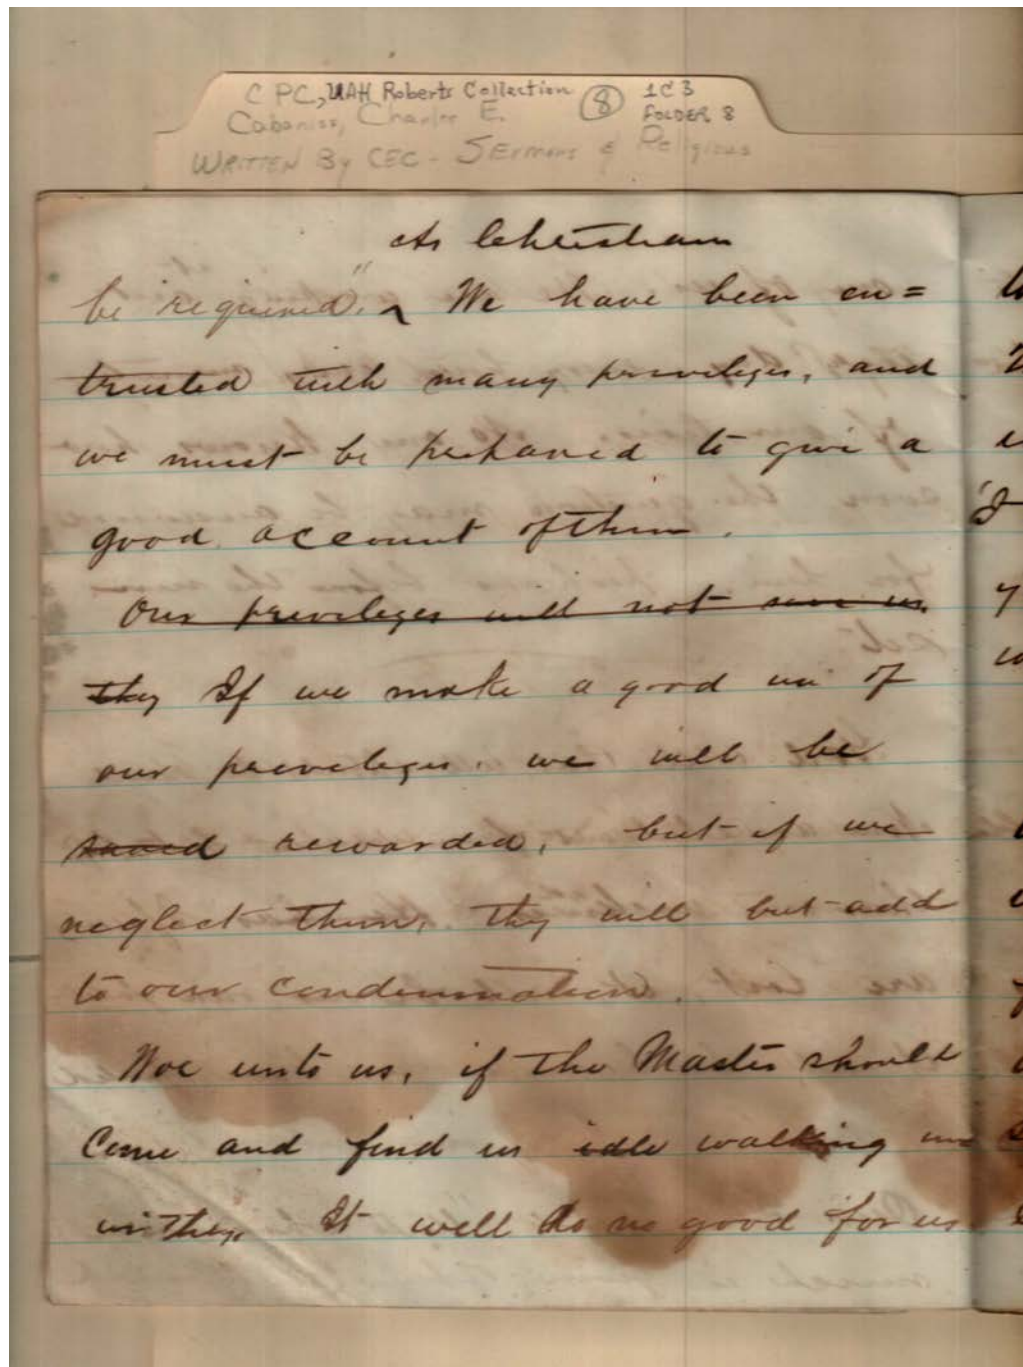 C PC, UAH Roberts Collection 8 1C3
Cabaniss, Charles E. FOLDER 8
WRITTEN By CEC - SERMONS & Religious
As Christians
be required." ^ We have been en=
trusted with many privileges, and
we must be prepared to give a
good account of them.
Our privileges will not save us
they If we make a good use of
our privileges, we will be
saved rewarded, but if we
neglect them, they will but add
to our condemnation.
Woe unto us, if the Master should
Come and find us idle walking
It will do no good for us